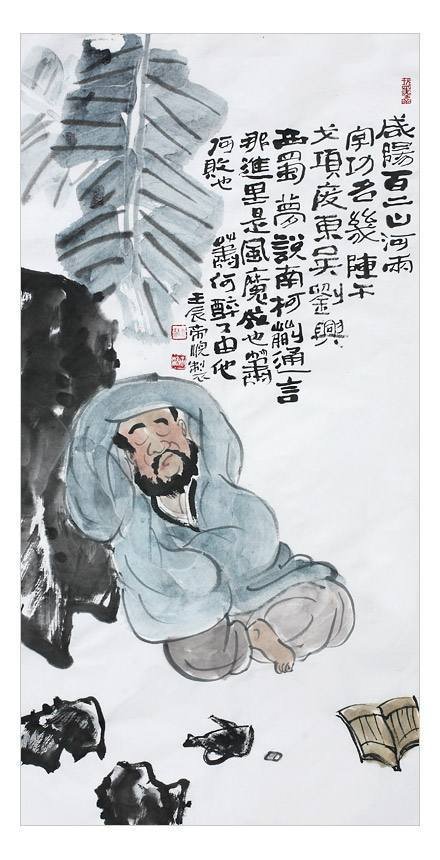 咸陽百二山河兩
字功名幾陣干
戈項廢東吳劉興
西蜀夢說南柯蒯通言
那進里是風魔成也蕭
何敗也蕭何醉了由他
壬辰 製